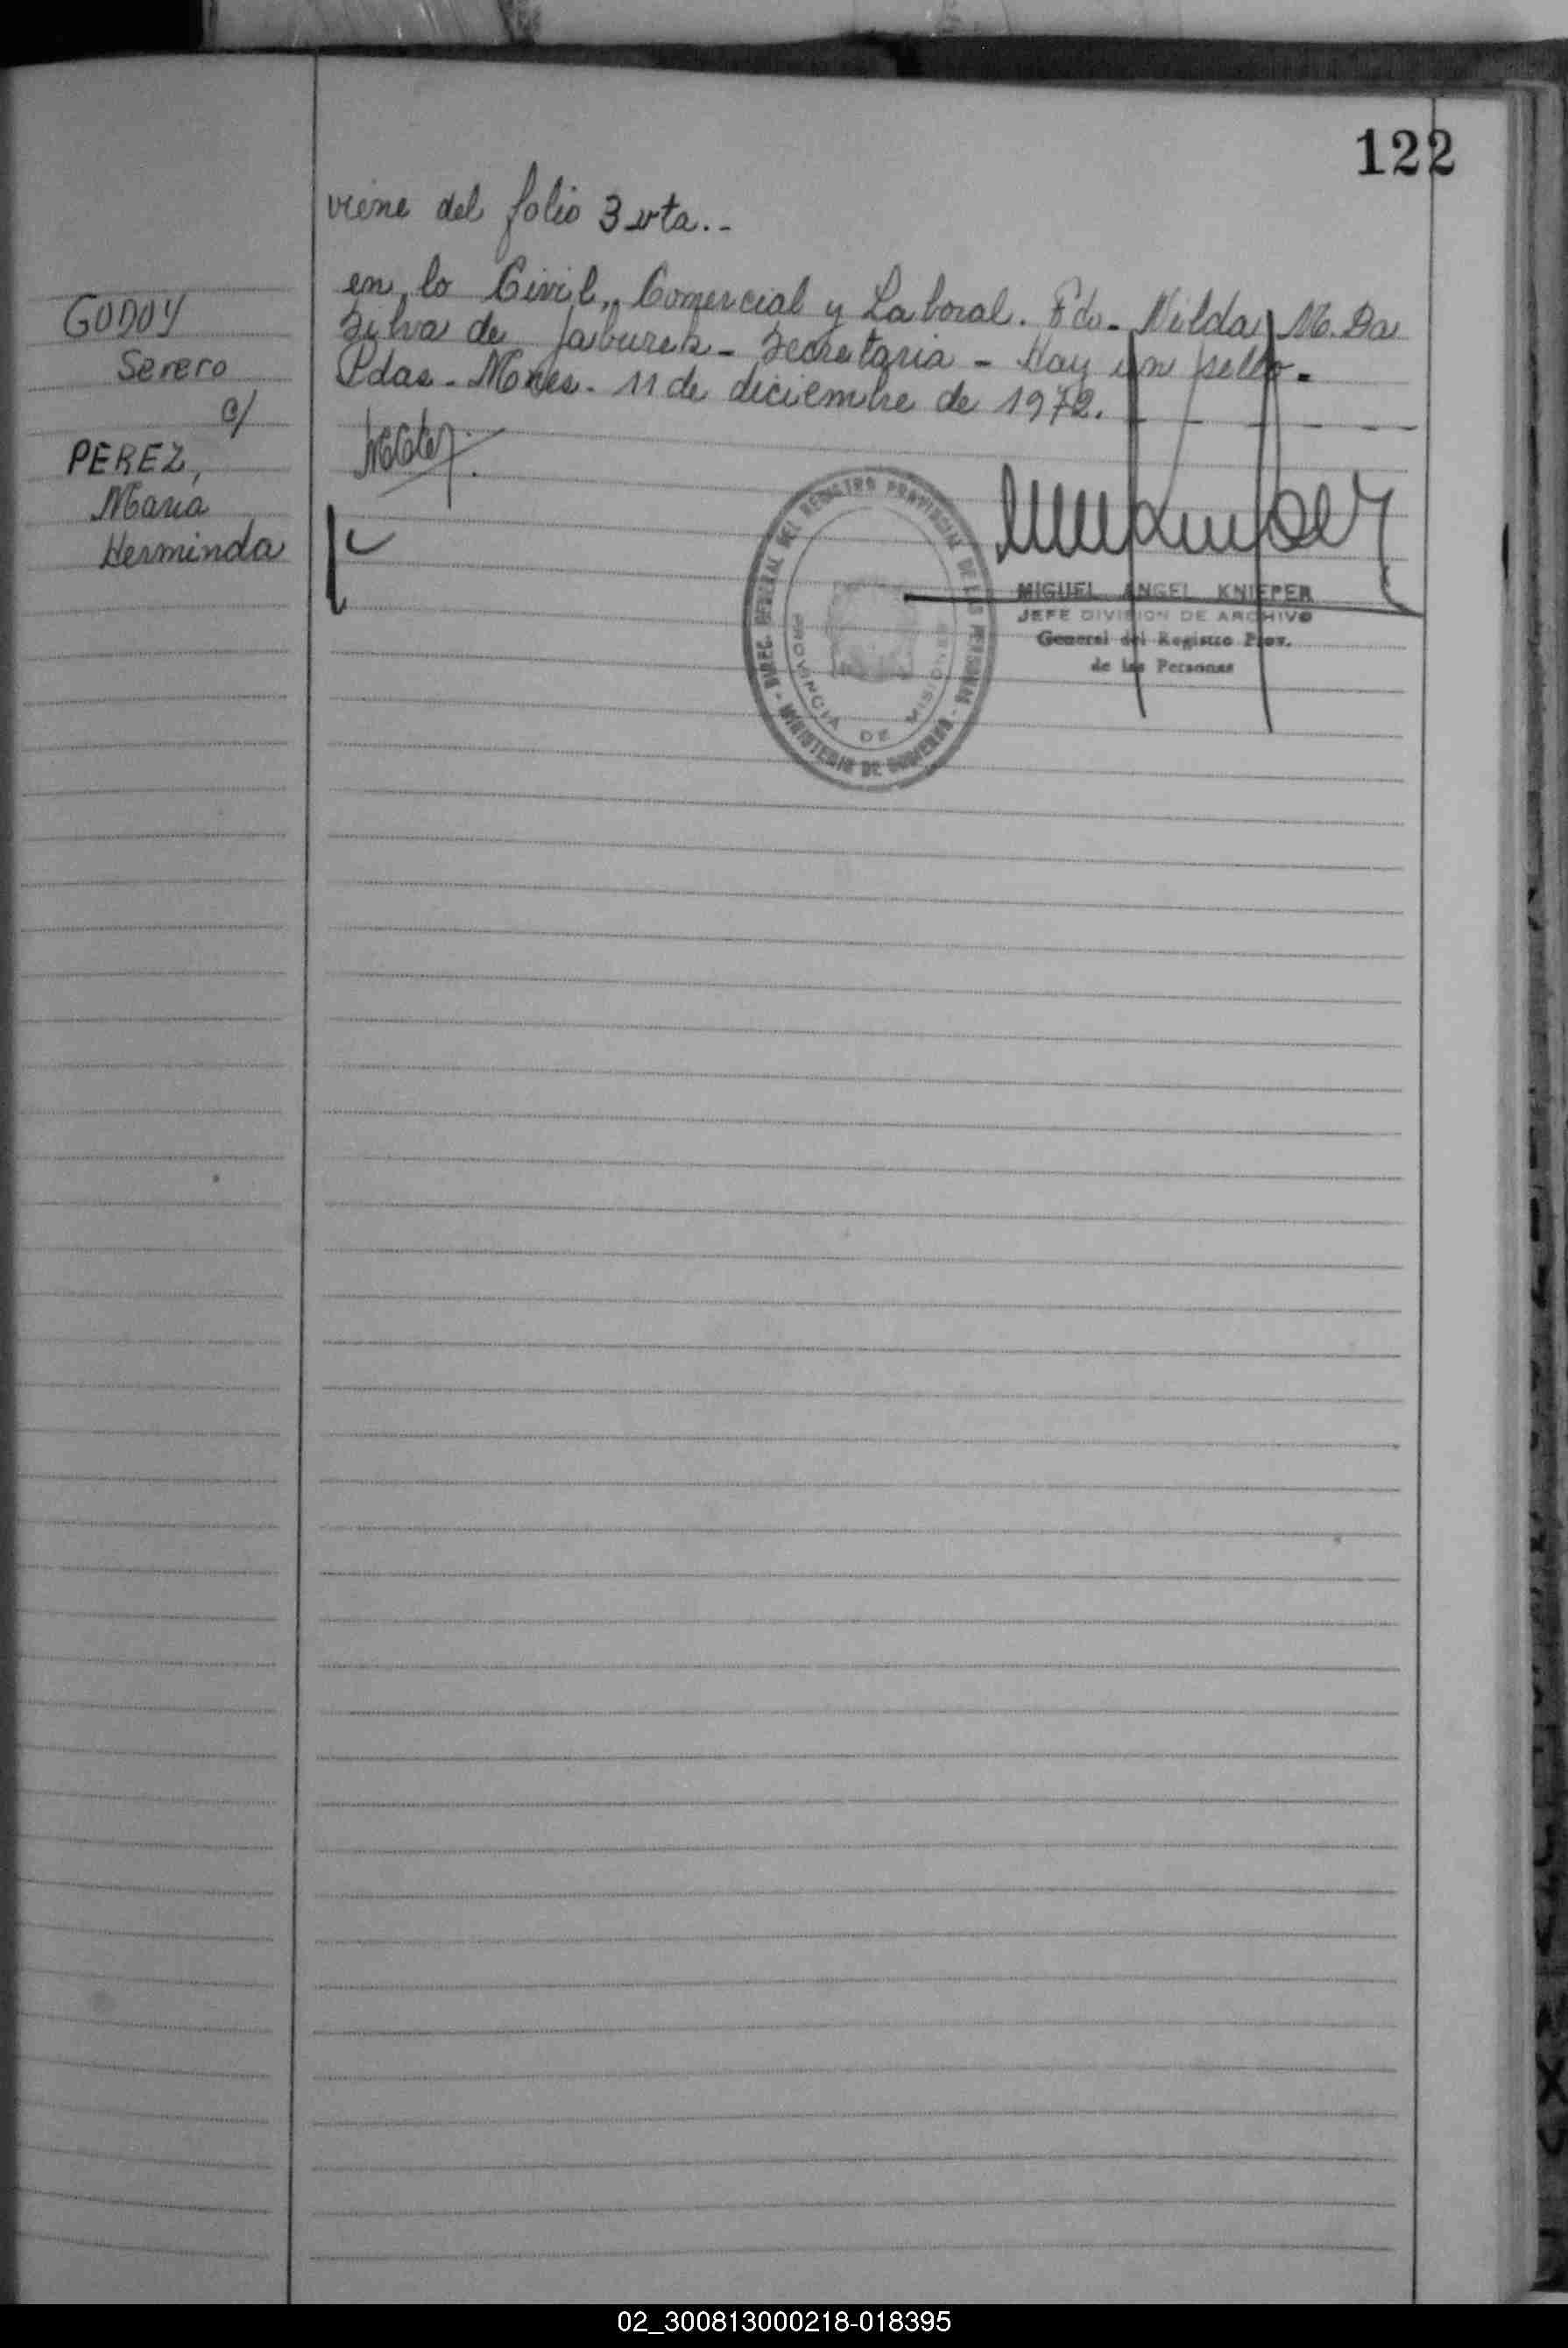 122
viene del folio 3 vta..-
GODOY
Severo
c/
PEREZ,
Maria
Herminda
en lo Civil, Comercial y Laboral. Fdo. Nilda M. Da
Silva de Jaburek - Secretaria - Hay un sello.
Pdas - Mnes. 11 de diciembre de 1972.
DIREC. GENERAL DEL REGISTRO PROVINCIAL DE LAS PERSONAS - MINISTERIO DE GOBIERNO -
PROVINCIA DE MISIONES
MIGUEL ANGEL KNIEPER
JEFE DIVISION DE ARCHIVO
General del Registro Prov.
de las Personas
02_300813000218-018395